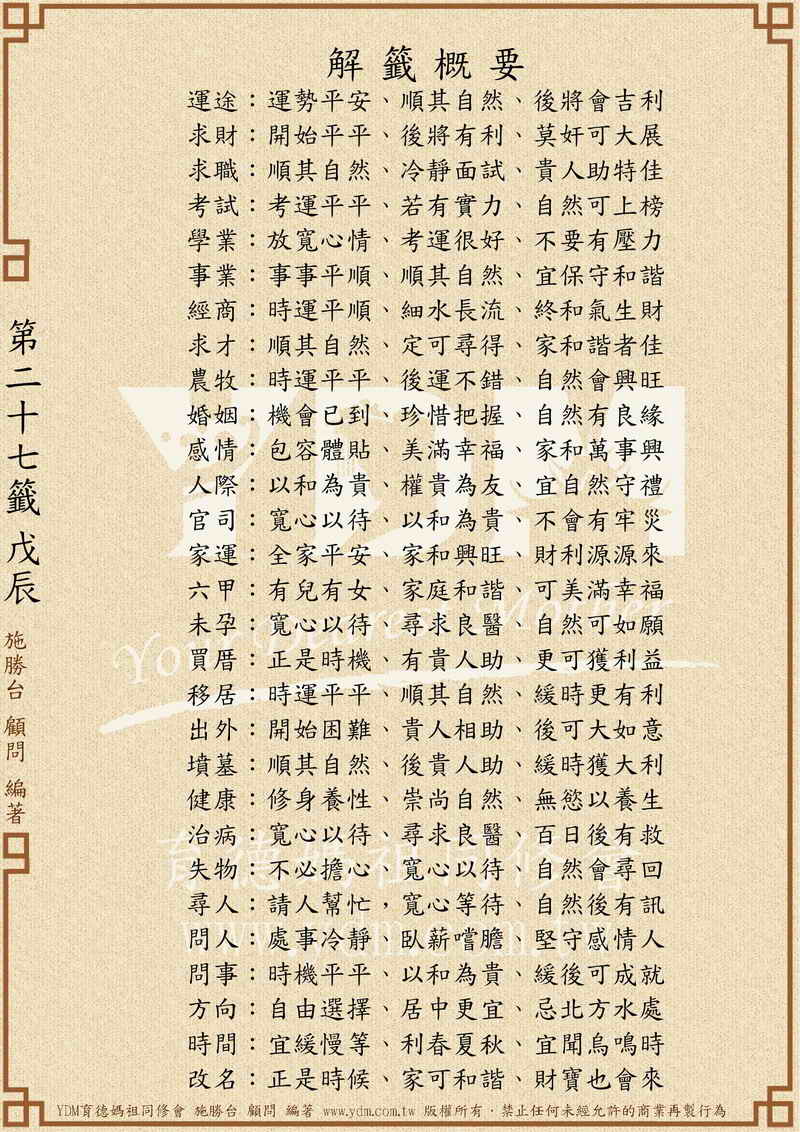 解籤概要
運途：運勢平安、順其自然、後將會吉利
求財：開始平平、後將有利、莫奸可大展
求職：順其自然、冷靜面試、貴人助特佳
考試：考運平平、若有實力、自然可上榜
學業：放寬心情、考運很好、不要有壓力
事業：事事平順、順其自然、宜保守和諧
經商：時運平順、細水長流、終和氣生財
求才：順其自然、定可尋得、家和諧者佳
農牧：時運平平、後運不錯、自然會興旺
婚姻：機會已到、珍惜把握、自然有良緣
感情：包容體貼、美滿幸福、家和萬事興
人際：以和為貴、權貴為友、宜自然守禮
官司：寬心以待、以和為貴、不會有牢災
家運：全家平安、家和興旺、財利源源來
六甲：有兒有女、家庭和諧、可美滿幸福
未孕：寬心以待、尋求良醫、自然可如願
買厝：正是時機、有貴人助、更可獲利益
移居：時運平平、順其自然、緩時更有利
出外：開始困難、貴人相助、後可大如意
墳墓：順其自然、後貴人助、緩時獲大利
健康：修身養性、崇尚自然、無慾以養生
治病：寬心以待、尋求良醫、百日後有救
失物：不必擔心、寬心以待、自然會尋回
尋人：請人幫忙，寬心等待、自然後有訊
問人：處事冷靜、臥薪嚐膽、堅守感情人
問事：時機平平、以和為貴、緩後可成就
方向：自由選擇、居中更宜、忌北方水處
時間：宜緩慢等、利春夏秋、宜聞烏鳴時
改名：正是時候、家可和諧、財寶也會來
第二十七籤 戊辰
施勝台 顧問 編著
YDM
Your Dearest Mother
育德媽祖同修會
www.ydm.com.tw
YDM育德媽祖同修會 施勝台 顧問 編著 www.ydm.com.tw 版權所有．禁止任何未經允許的商業再製行為